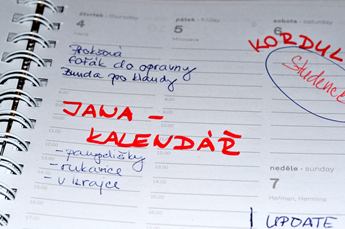 čtvrtek - thursday
4
pátek - friday
5
sobota - saturday
6
KORDUL
Studénec
Proksová
foťák do opravny
bunda pro klaudy
JANA -
KALENDÁŘ
- pampelišky
- rukavice
- v krajce
neděle - sunday
7
UPDATE